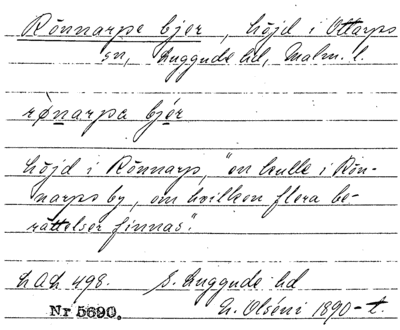 Rönnarps bjer, höjd i Ottarps
sn, Luggude hd, Malm. l.
rø̀narpa bjér
höjd i Rönnarp, "en kulle i Rön-
narps by, om hvilken flera be-
rättelser finnas".
LAL 498. S. Luggude hd
Nr 5690. N. Olséni 1890-t.